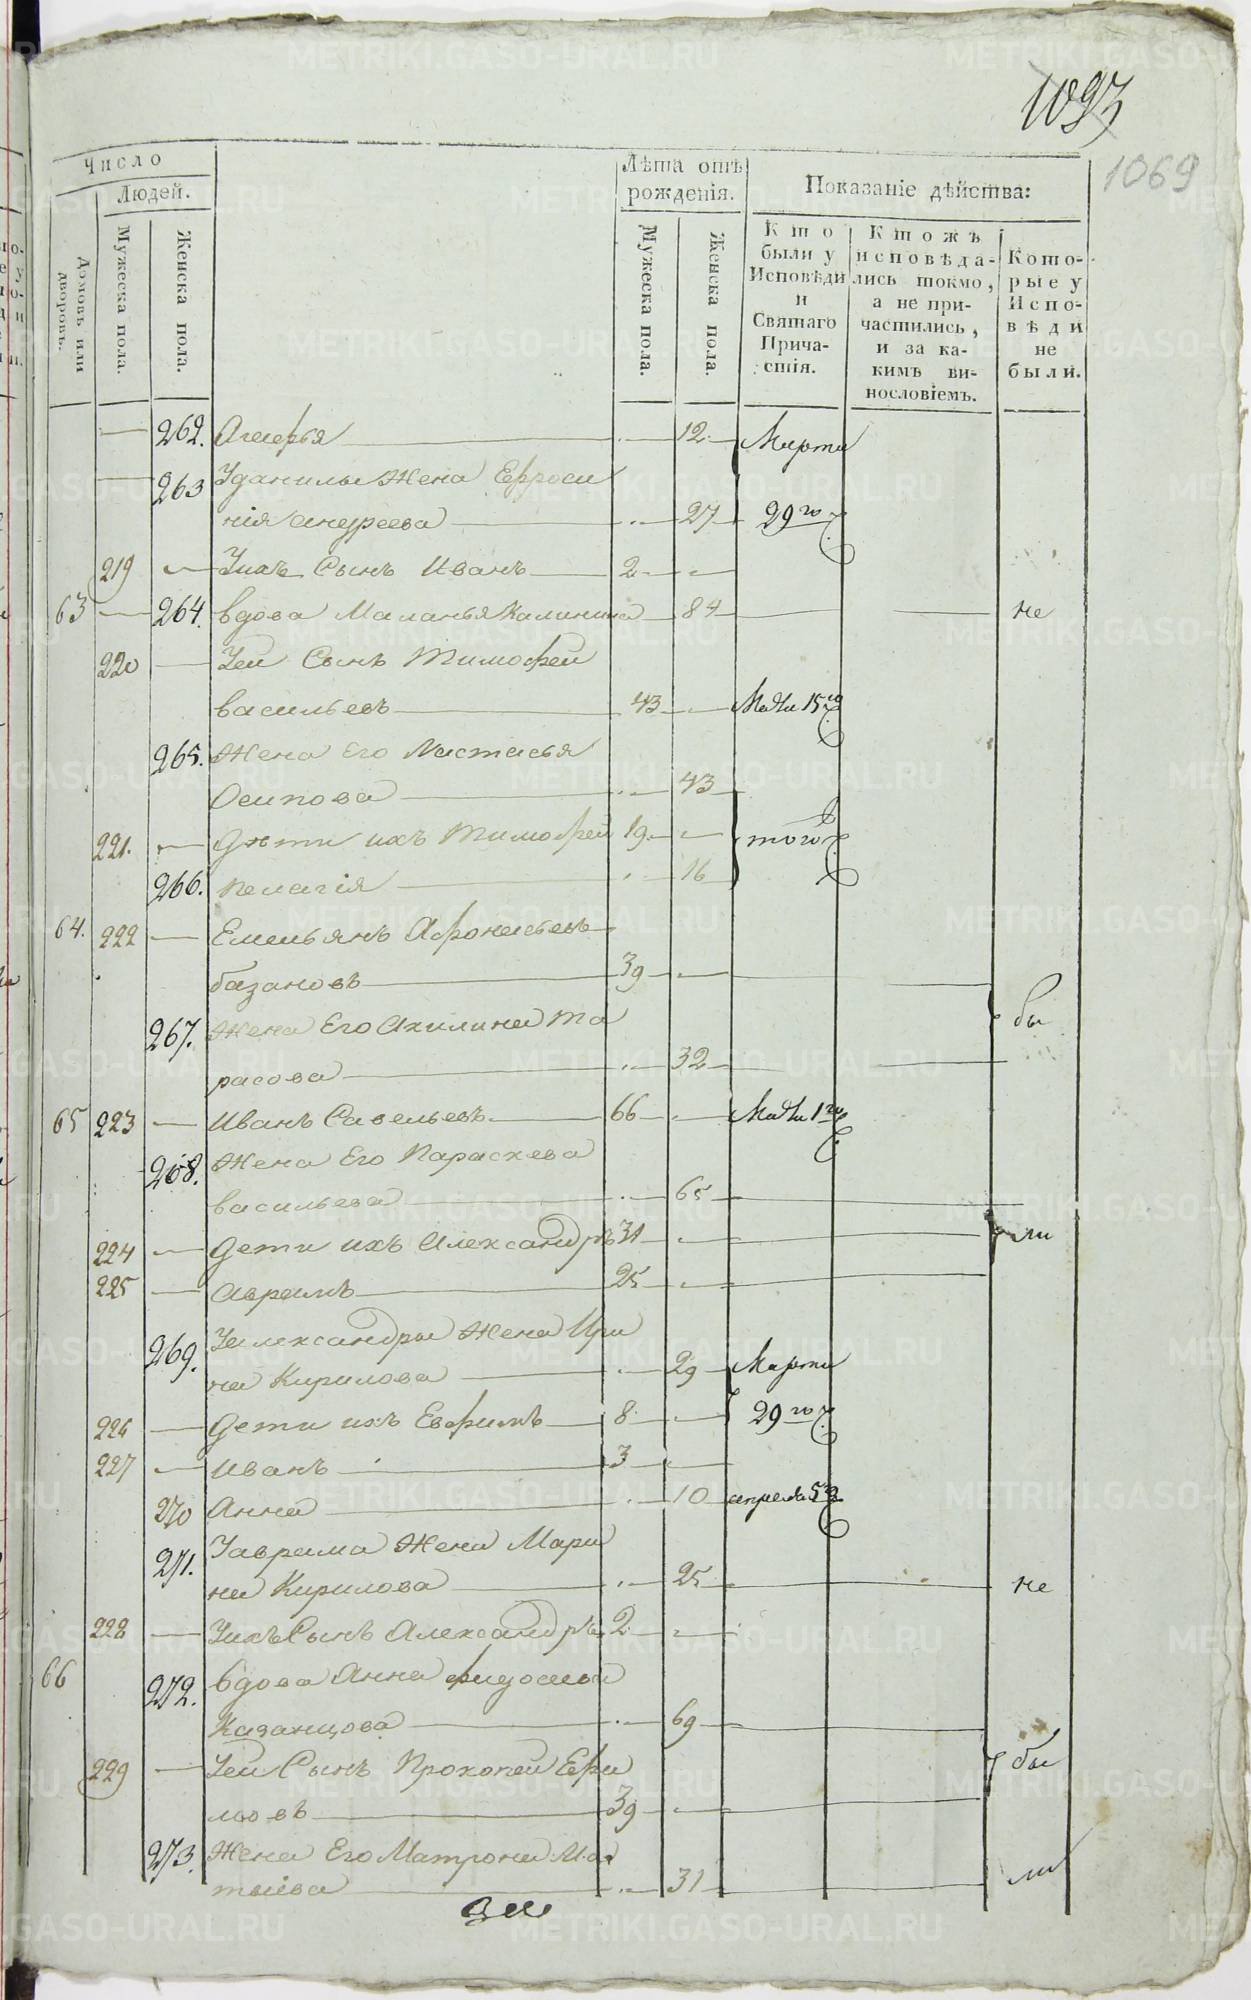 1093
1069
Число
Людей.
Домовъ или дворовъ.
Мужеска пола.
Женска пола.
Лѣта отъ рожденія.
Мужеска пола.
Женска пола.
Показаніе дѣйства:
Кто были у Исповѣди и Святаго Причастія.
Ктожъ исповѣдались токмо, а не причастились, и за какимъ винословіемъ.
Которые у Исповѣди не были.
262. 12 Марта
263 Уданилы Жена Ефроси
нія андреева 27 29го
219 Уихъ Сынъ Иванъ 2
63 264. вдова Маланья Калинина 84 не
220 Уей Сынъ Тимофей
васильевъ 43 15го
265. Жена Его Настасья
Осипова 43
221. Дѣти ихъ Тимофей 19 того
266. пелагія 16
64. 222 Емельянъ Афонасьевъ
базановъ 39
бы
267. Жена Его Акилина Та
расова 32
65 223 Иванъ Савельевъ 66
268. Жена Его Параскева
васильева 65
224 Дети ихъ Александръ 31 ли
225 Аврамъ 25
269. Уалександры Жена Ири
на Кирилова 29 Марта
226 Дети ихъ Евфимъ 8 29го
227 иванъ 3
270 Анна 10 апреля 5го
271. Уаврама Жена Мари
на Кирилова 25 не
228 Уихъ Сынъ Александръ 2
66 272. вдова Анна
Казанцова 69
229 Уей Сынъ Прокопей Ефи
мовъ 39 бы
273. Жена Его Матрона Ма
тѣива 31 ли